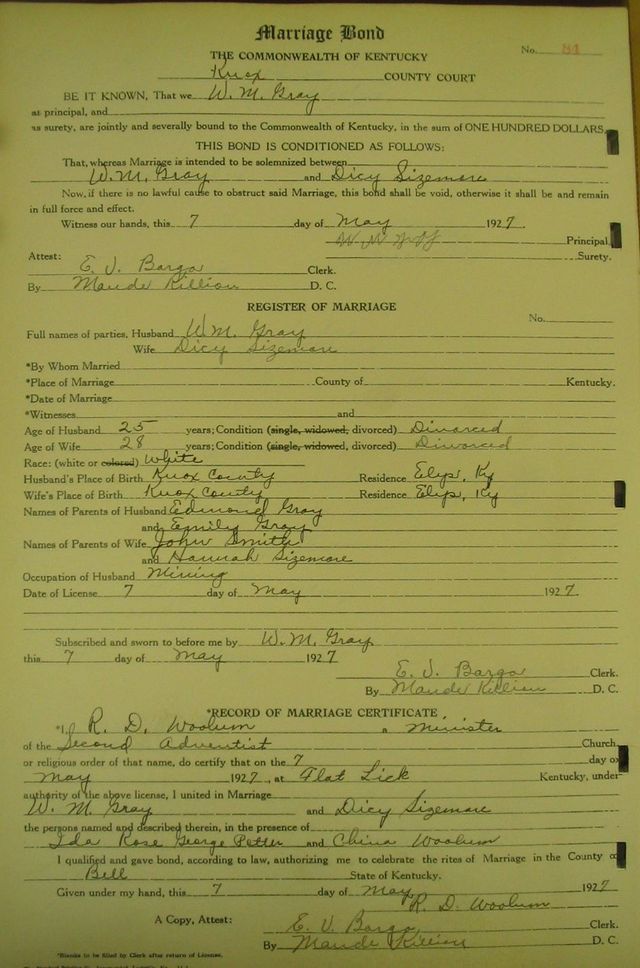 Marriage Bond
No. 84
THE COMMONWEALTH OF KENTUCKY
Knox COUNTY COURT
BE IT KNOWN, That we W. M. Gray
as principal, and
as surety, are jointly and severally bound to the Commonwealth of Kentucky, in the sum of ONE HUNDRED DOLLARS.
THIS BOND IS CONDITIONED AS FOLLOWS:
That, whereas Marriage is intended to be solemnized between
W. M. Gray and Dicy Sizemore
Now, if there is no lawful cause to obstruct said Marriage, this bond shall be void, otherwise it shall be and remain
in full force and effect.
Witness our hands, this 7 day of May 1927.
Principal.
Attest: Surety.
E. J. Bargo Clerk.
By Maude Killion D. C.
REGISTER OF MARRIAGE
No.
Full names of parties, Husband W.M. Gray
Wife Dicy Sizemore
*By Whom Married
*Place of Marriage County of Kentucky.
*Date of Marriage
*Witnesses and
Age of Husband 25 years; Condition (single, widowed, divorced) Divorced
Age of Wife 28 years; Condition (single, widowed, divorced) Divorced
Race: (white or colored) White
Husband's Place of Birth Knox County Residence Elys, Ky
Wife's Place of Birth Knox County Residence Elys, Ky
Names of Parents of Husband Edmond Gray
and Emily Gray
Names of Parents of Wife John Smith
and Hannah Sizemore
Occupation of Husband Mining
Date of License 7 day of May 1927.
Subscribed and sworn to before me by W. M. Gray
this 7 day of May 1927
E. J. Bargo Clerk.
By Maude Killion D. C.
*RECORD OF MARRIAGE CERTIFICATE
*I, R. D. Woolum a Minister
of the Second Adventist Church,
or religious order of that name, do certify that on the 7 day of
May 1927, at Flat Lick Kentucky, under
authority of the above license, I united in Marriage
W. M. Gray and Dicy Sizemore
the persons named and described therein, in the presence of
Ida Rose George Petter and China Woolum
I qualified and gave bond, according to law, authorizing me to celebrate the rites of Marriage in the County of
Bell State of Kentucky.
Given under my hand, this 7 day of May 1927
R. D. Woolum
A Copy, Attest: E. J. Bargo Clerk.
By Maude Killion D. C.
*Blanks to be filled by Clerk after return of License.